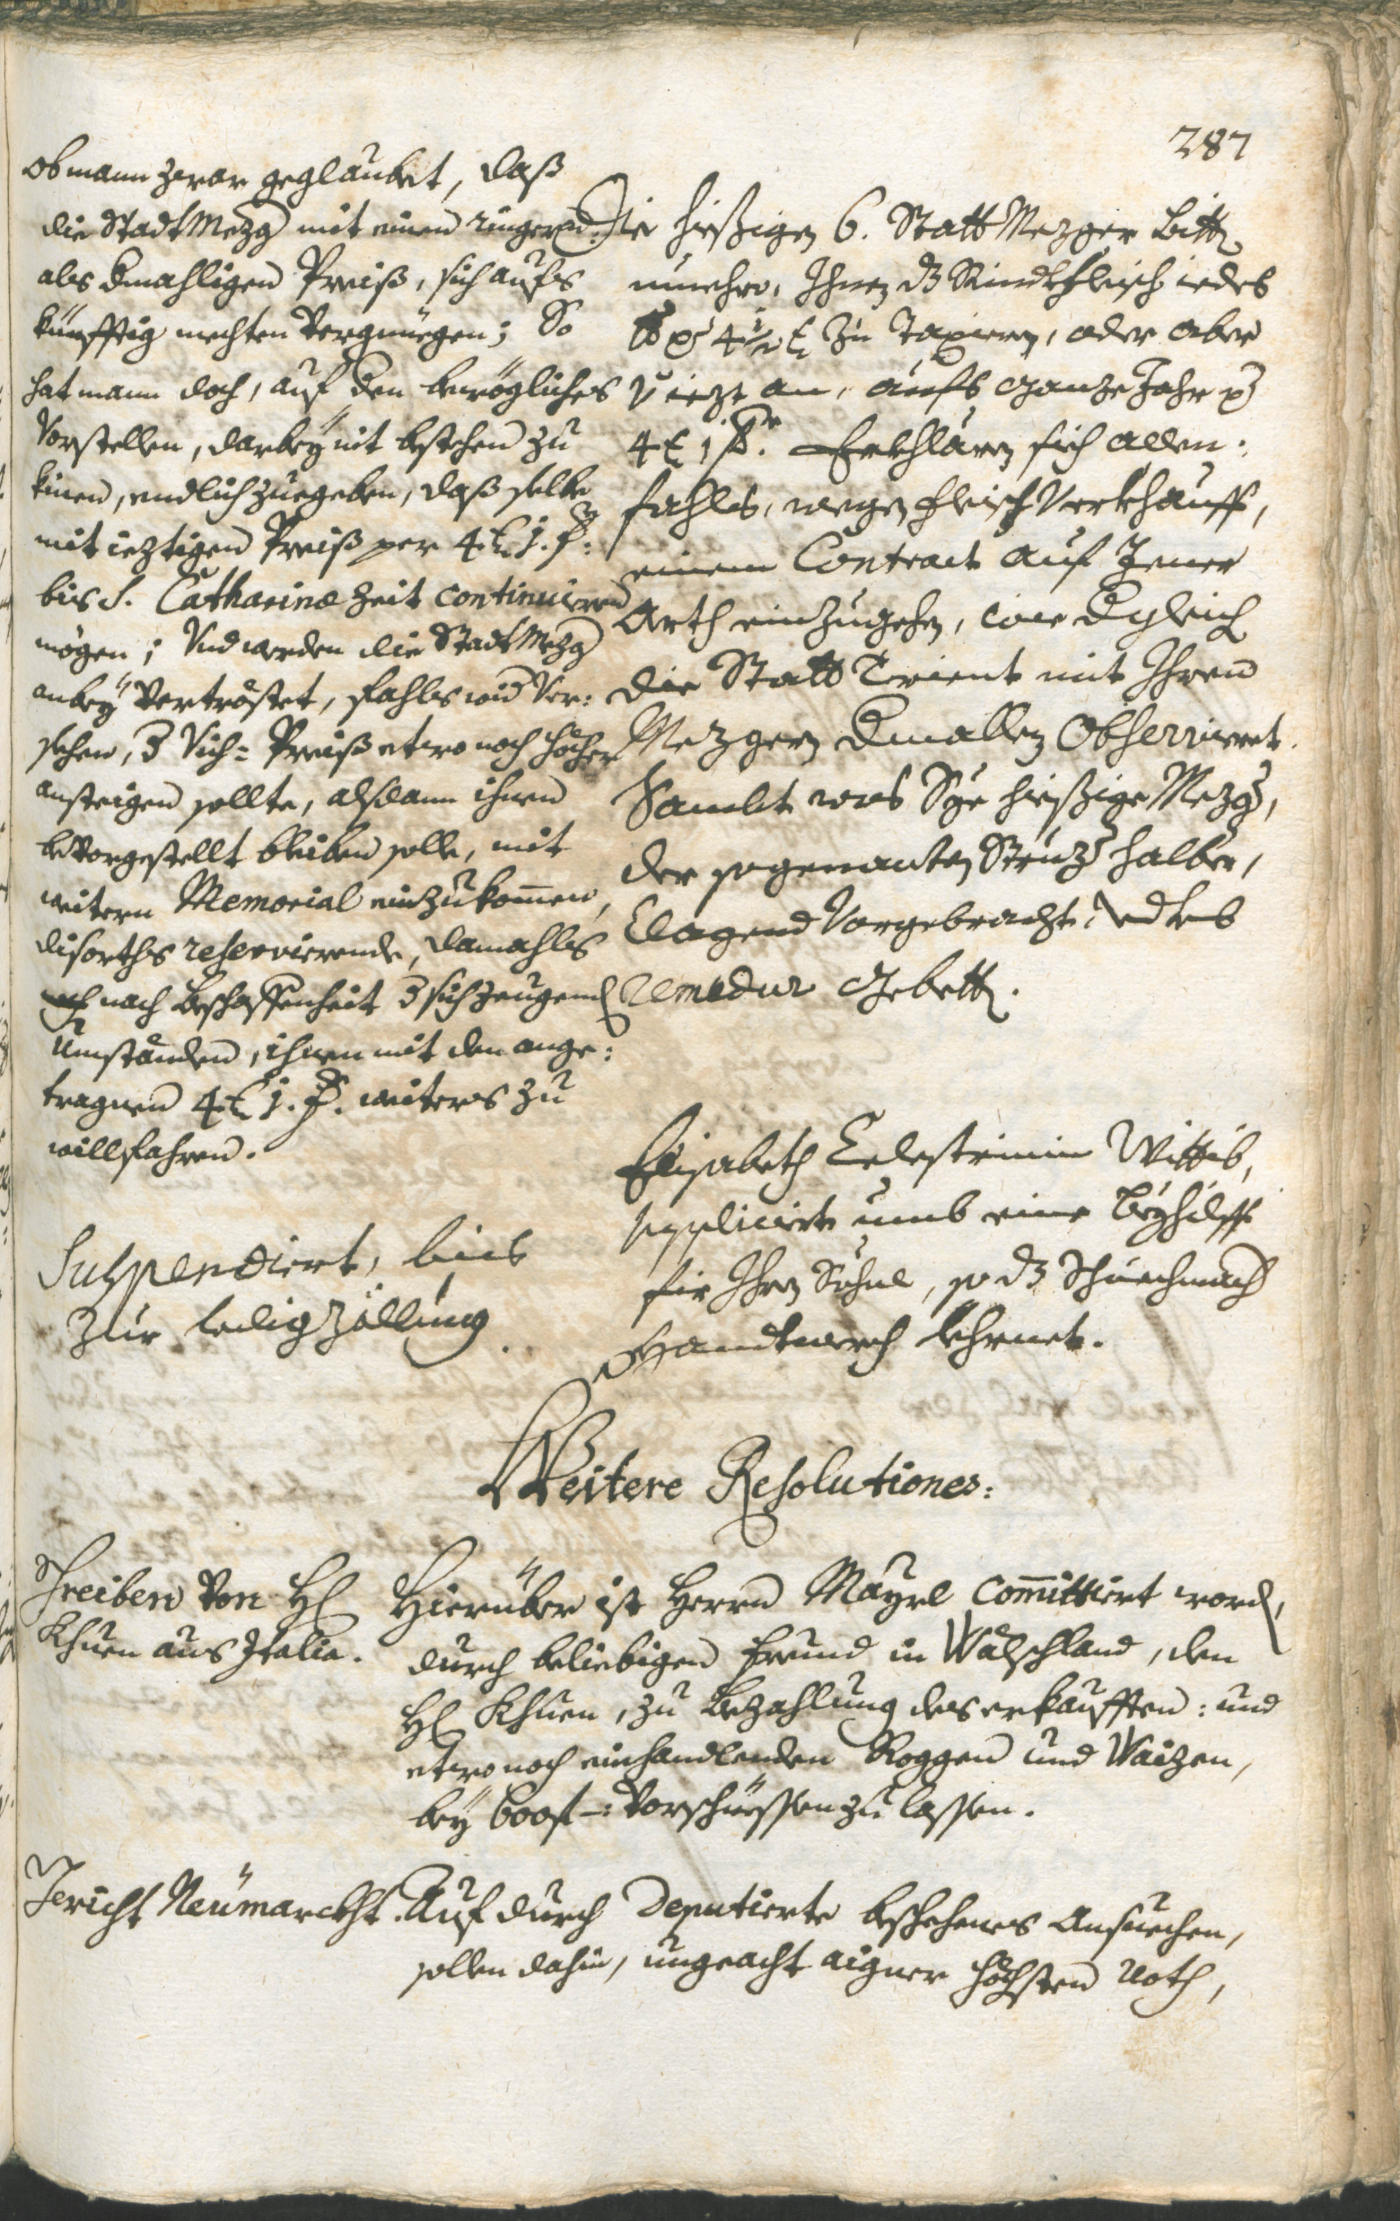 287
Ob mann zwar geglaubet, daß
die Stadt Mezg mit einen ringern
als dermahligen Preiß, sich aufs
künfftig mechten Vergnüegen; So
hat mann doch, auf den bewögliches
Vorstellen, darbey nit bestehen zu
kinen, endlich zuegeben, daß selbe
mit ieztigen Preiß per 4. x. 1. f:
bis S. Catharinæ Zeit continuiren
mögen; Und werden die Stadt Mezg
anbey Vertröstet, fahls wid Ver:
sehen, d Vich= Preiß etwo noch höcher
ansteigen sollte, alsdann ihnen
bevorgestellt bleiben solle, mit
weitern Memorial einzukomen,
disorths reservierende, damahls
nach Beschaffenheit d sich zeugend
Umständen, ihnen mit den ange:
tragnen 4. x 1. f. weiters zu
willfahren.
Die hießigen 6. Statt Mezger bitten
nunehro, Ihnen dz Rindtfleisch iedes
lb p 4 1/2 x zu Taxieren, oder aber
V iezt an, aufs ganze Jahr p
4 x 1 f. Erkhlären sich allen:
fahls, wegen fleisch Verkhauff,
einem Contract auf Jener
Arth einzugehen, wie dgleich
die Statt Trient mit Ihren
Mezgern dmallen Observieret.
Sambt was Sye hießige Mezg,
der sogenanten Steuz halber,
Clagend Vorgebracht, und umb
remedur gebetten.
Suspendiert, bis
zur ledigzällung.
Elisabeth Celestrinin Wittib,
supplicirt umb eine Beyhilff
fir Ihren Sohne, so dz Schuechmach
Handtwerch lehrnet.
Weitere Resolutiones:
Schreiben Von H
Khuen aus Italia.
Hierüber ist Herrn Mayrl Committiert word,
durch beliebigen freund in Wälschland, den
H Khuen, zu Bezahlung des erkaufften: und
etwo noch einhandlenden Roggen und Waizen,
bey 600 f –: Vorschüessen zu lassen.
Gericht Neumarckht.
Auf durch Deputierte beschehenes Ansuechen,
sollen dahin, ungeacht aigner höchsten Noth,